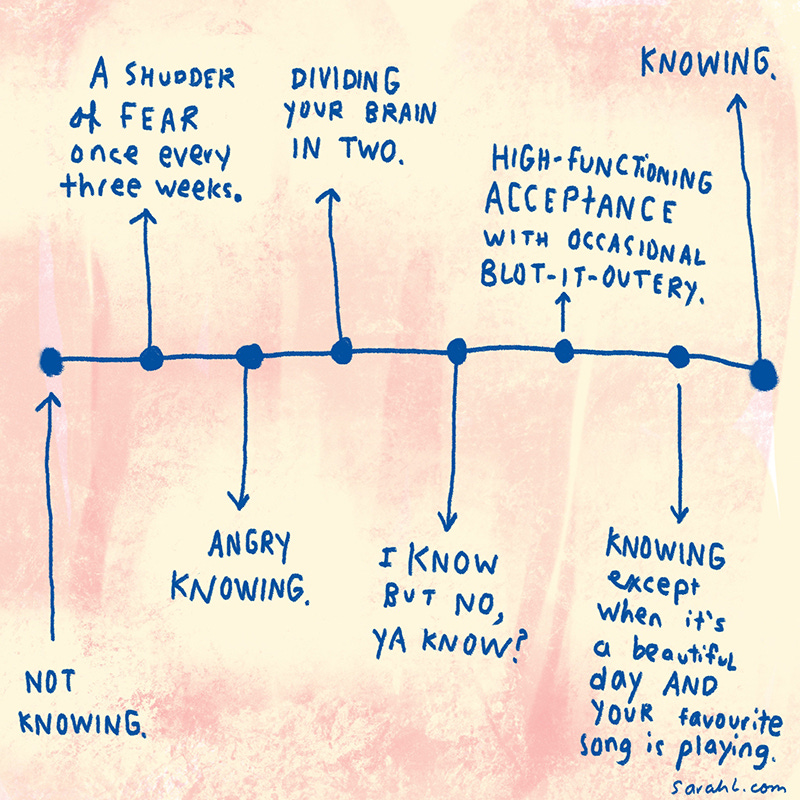 NOT
KNOWING.
A SHUDDER
of FEAR
once every
three weeks.
ANGRY
KNOWING.
DIVIDING
YOUR BRAIN
IN TWO.
I KNOW
BUT NO,
YA KNOW?
HIGH-FUNCTIONING
ACCEPTANCE
WITH OCCASIONAL
BLOT-IT-OUTERY.
KNOWING
except
when it's
a beautiful
day AND
YOUR favourite
song is playing.
KNOWING.
sarahl.com